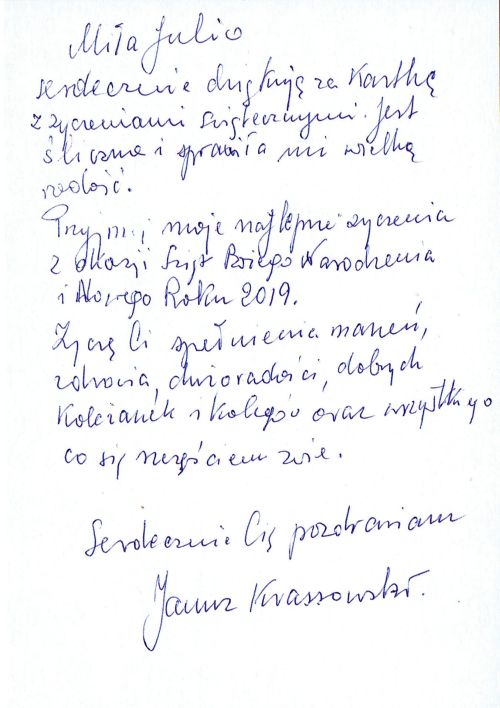 Miła Julio
serdecznie dziękuję za kartkę
z życzeniami świątecznymi. Jest
śliczna i sprawiła mi wielką
radość.
Przyjmij moje najlepsze życzenia
z okazji Świąt Bożego Narodzenia
i Nowego Roku 2019.
Życzę Ci spełnienia marzeń,
zdrowia, dużo radości, dobrych
koleżanek i kolegów oraz wszystkiego
co się szczęściem zwie.
Serdecznie Cię pozdrawiam
Janusz Krassowski.